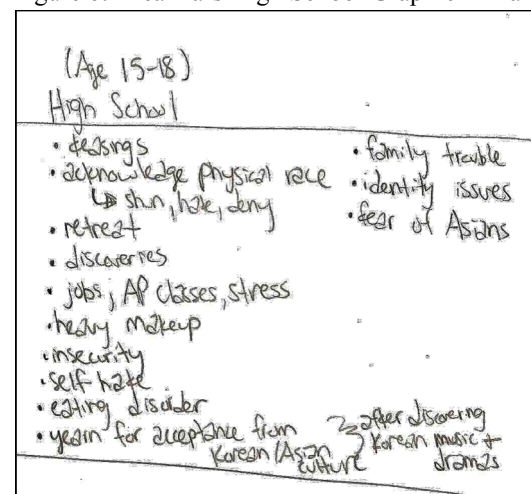 (Age 15-18)
High School
• teasings
• acknowledge physical race
↳ shun, hate, deny
• retreat
• discoveries
• jobs, AP classes, stress
• heavy makeup
• insecurity
• self-hate
• eating disorder
• yearn for acceptance from
Korean/Asian
culture
after discovering
Korean music +
dramas
• family trouble
• identity issues
• fear of Asians